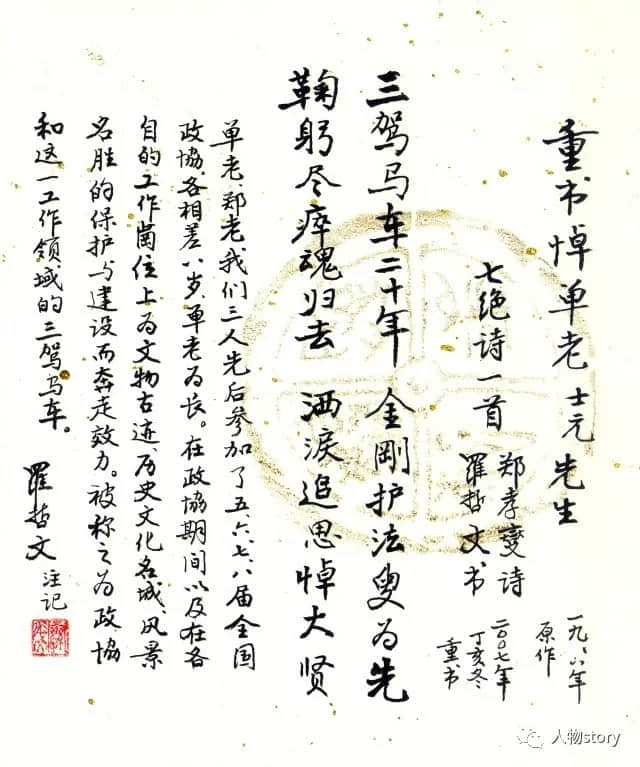 重书悼单老士元先生
七绝诗一首
郑孝燮诗
羅哲文书
原作
二〇〇七年
丁亥冬
重书
三驾马车二十年 金剛护法叟为先
鞠躬尽瘁魂归去 洒淚追思悼大贤
单老、郑老、我们三人先后参加了五、六、七、八届全国
政協,各相差八岁,单老为长。在政協期间以及在各
自的工作崗位上为文物古迹,历史文化名城,风景
名胜的保护与建设而奔走效力。被称之为政協
和这一工作领域的三驾马车。
羅哲文 注记
人物story